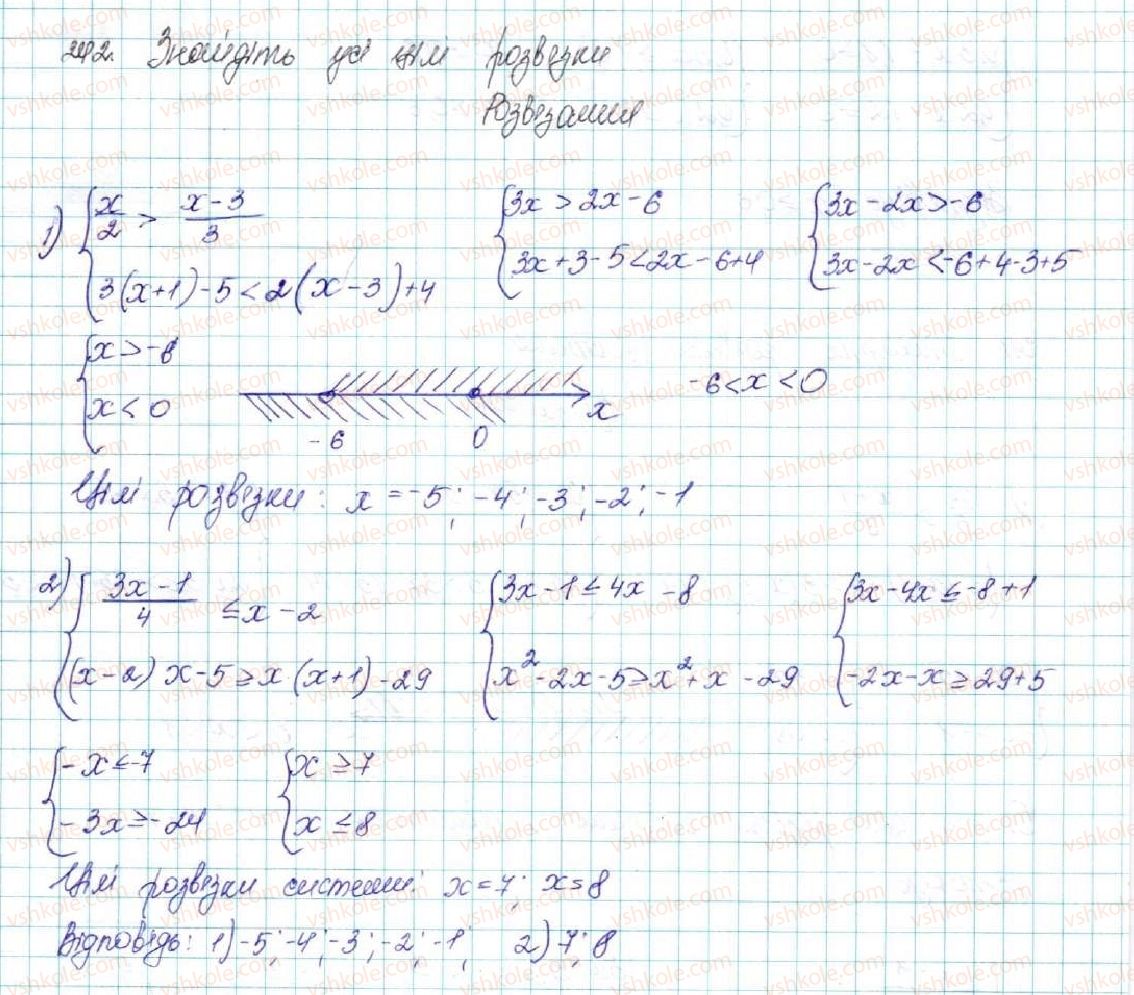 242. Знайдіть усі цілі розвезки
Розвезання
1) { x/2 > (x-3)/3 { 3x > 2x - 6 { 3x - 2x > -6
{ 3(x+1) - 5 < 2(x-3) + 4 { 3x + 3 - 5 < 2x - 6 + 4 { 3x - 2x < -6 + 4 - 3 + 5
{ x > -6
{ x < 0 -6 0 x -6 < x < 0
Цілі розвезки: x = -5; -4; -3; -2; -1
2) { (3x-1)/4 ≤ x - 2 { 3x - 1 ≤ 4x - 8 { 3x - 4x ≤ -8 + 1
{ (x-2) x - 5 ≥ x (x+1) - 29 { x² - 2x - 5 ≥ x² + x - 29 { -2x - x ≥ 29 + 5
{ -x ≤ -7 { x ≥ 7
{ -3x ≥ -24 { x ≤ 8
Цілі розвезки системи: x = 7; x = 8
Відповідь: 1) -5; -4; -3; -2; -1; 2) 7; 8
vshkole.com